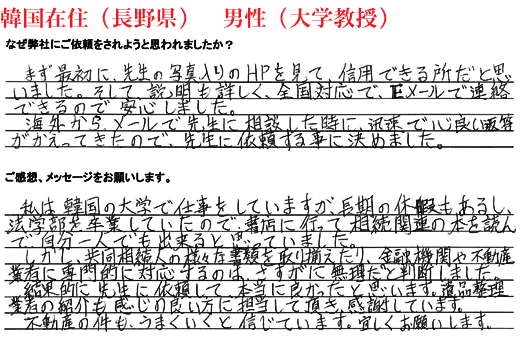 韓国在住（長野県）　男性（大学教授）
なぜ弊社にご依頼をされようと思われましたか？
まず最初に、先生の写真入りのHPを見て、信用できる所だと思
いました。そして、説明も詳しく、全国対応で、Eメールで連絡
できるので安心しました。
海外から、メールで先生に相談した時に、迅速で心良い返答
がかえってきたので、先生に依頼する事に決めました。
ご感想、メッセージをお願いします。
私は韓国の大学で仕事をしていますが、長期の休暇もあるし、
法学部を卒業していたので、書店に行って相続関連の本を読ん
で、自分一人でも出来ると思っていました。
しかし、共同相続人の様々な書類を取り揃えたり、金融機関や不動産
業者に専門的に対応するのは、さすがに無理だと判断しました。
結果的に先生に依頼して、本当に良かったと思います。遺品整理
業者の紹介も感じの良い方に担当して頂き、感謝しています。
不動産の件も、うまくいくと信じています。宜しくお願いします。